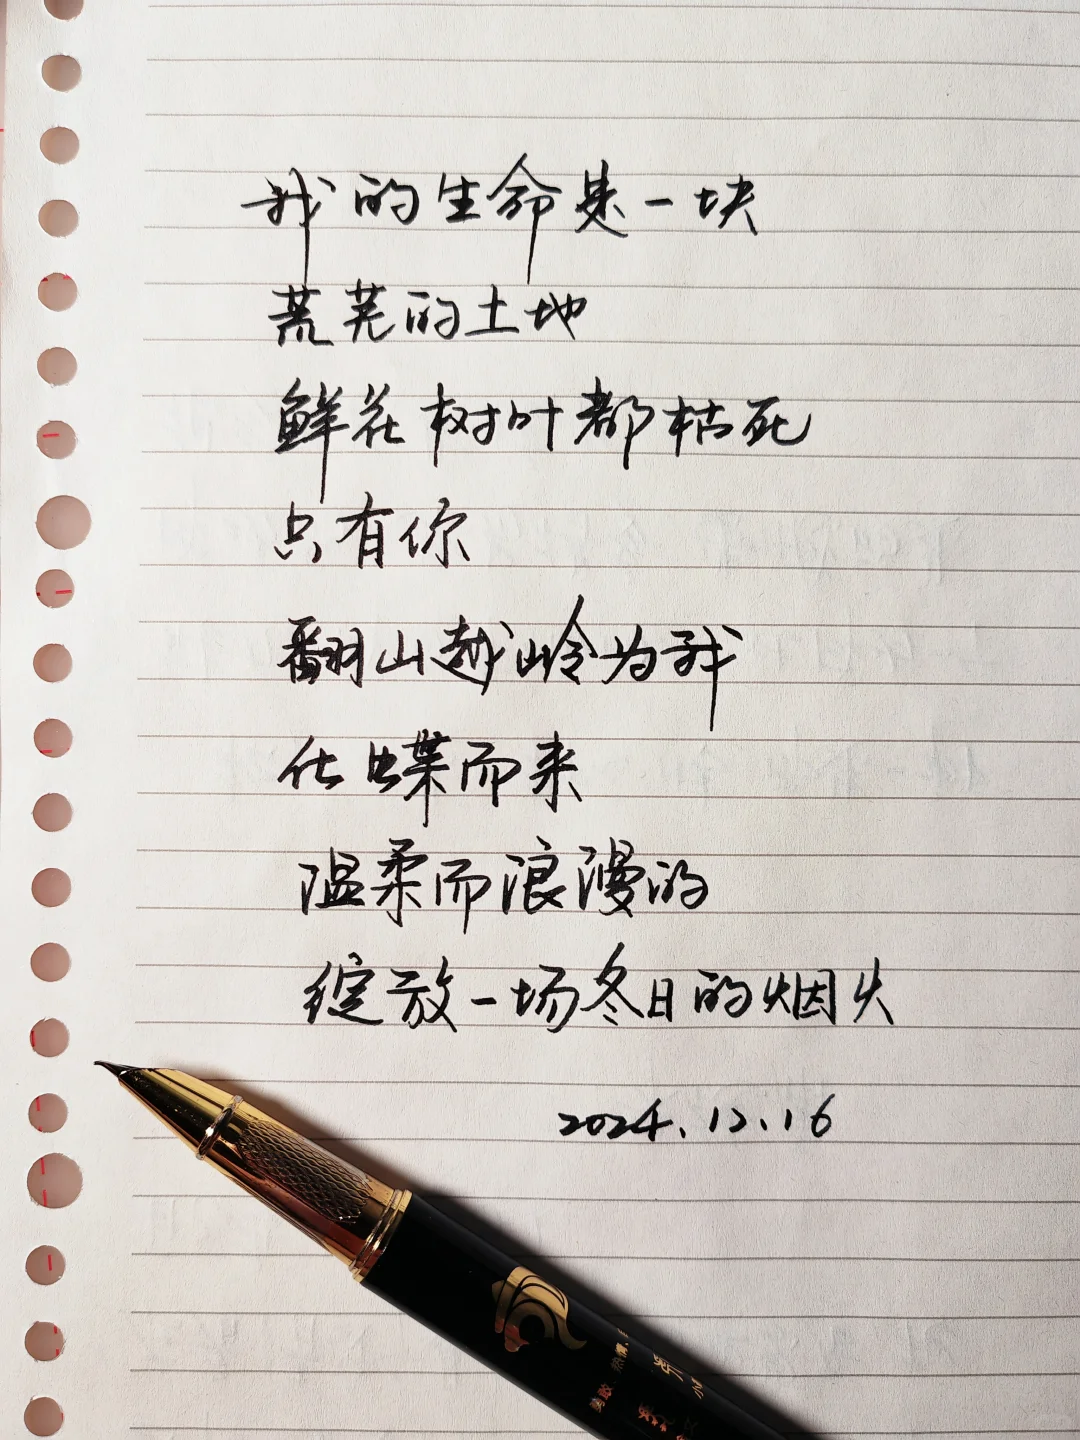 我的生命是一块
荒芜的土地
鲜花树叶都枯死
只有你
翻山越岭为我
化蝶而来
温柔而浪漫的
绽放一场冬日的烟火
2024.12.16